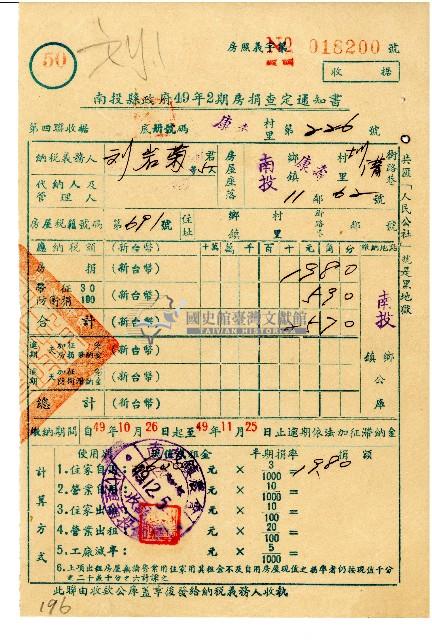 50
房照義字第 № 018200 號
收據
南投縣政府49年2期房捐查定通知書
第四聯收據 底册號碼 康壽 村里 第 226 號
納稅義務人 劉岩菊 君
房屋座落 南投 鄉鎮 康壽 村里 街路巷
代納人及管理人
11 鄰 62 號
房屋稅籍號碼 第 691 號 住址 鄉鎮 村里 鄰 號
應納稅額 (新台幣) 十萬 萬 千 百 十 元 角 分 繳納地點
房捐 (新台幣) 1980
帶征防衛捐 30/100 (新台幣) 590
合計 (新台幣) 2570
南投 鄉鎮公庫
逾期 天加征 % (新台幣)
逾期 天加征 % (新台幣)
總計 (新台幣)
繳納期間 自49年10月26日起至49年11月25日止逾期依法加征滯納金
計算方式
使用別 現值或租金 半期捐率 捐額
1.住家自用 元 × 3/1000 = 1980
2.營業自用 元 × 10/1000 =
3.住家出租 元 × 10/100 =
4.營業出租 元 × 20/100 =
5.工廠減率: 元 × 5/1000 =
6.上項出租房屋無論營業用住家用其租金不及自用房屋現值之捐率者仍按現值千分之二十或千分之六計課之
此聯由收款公庫蓋章後發給納稅義務人收執
共匪「人民公社」就是黑地獄
國史館臺灣文獻館
TAIWAN HISTORICA
49.12.5
196